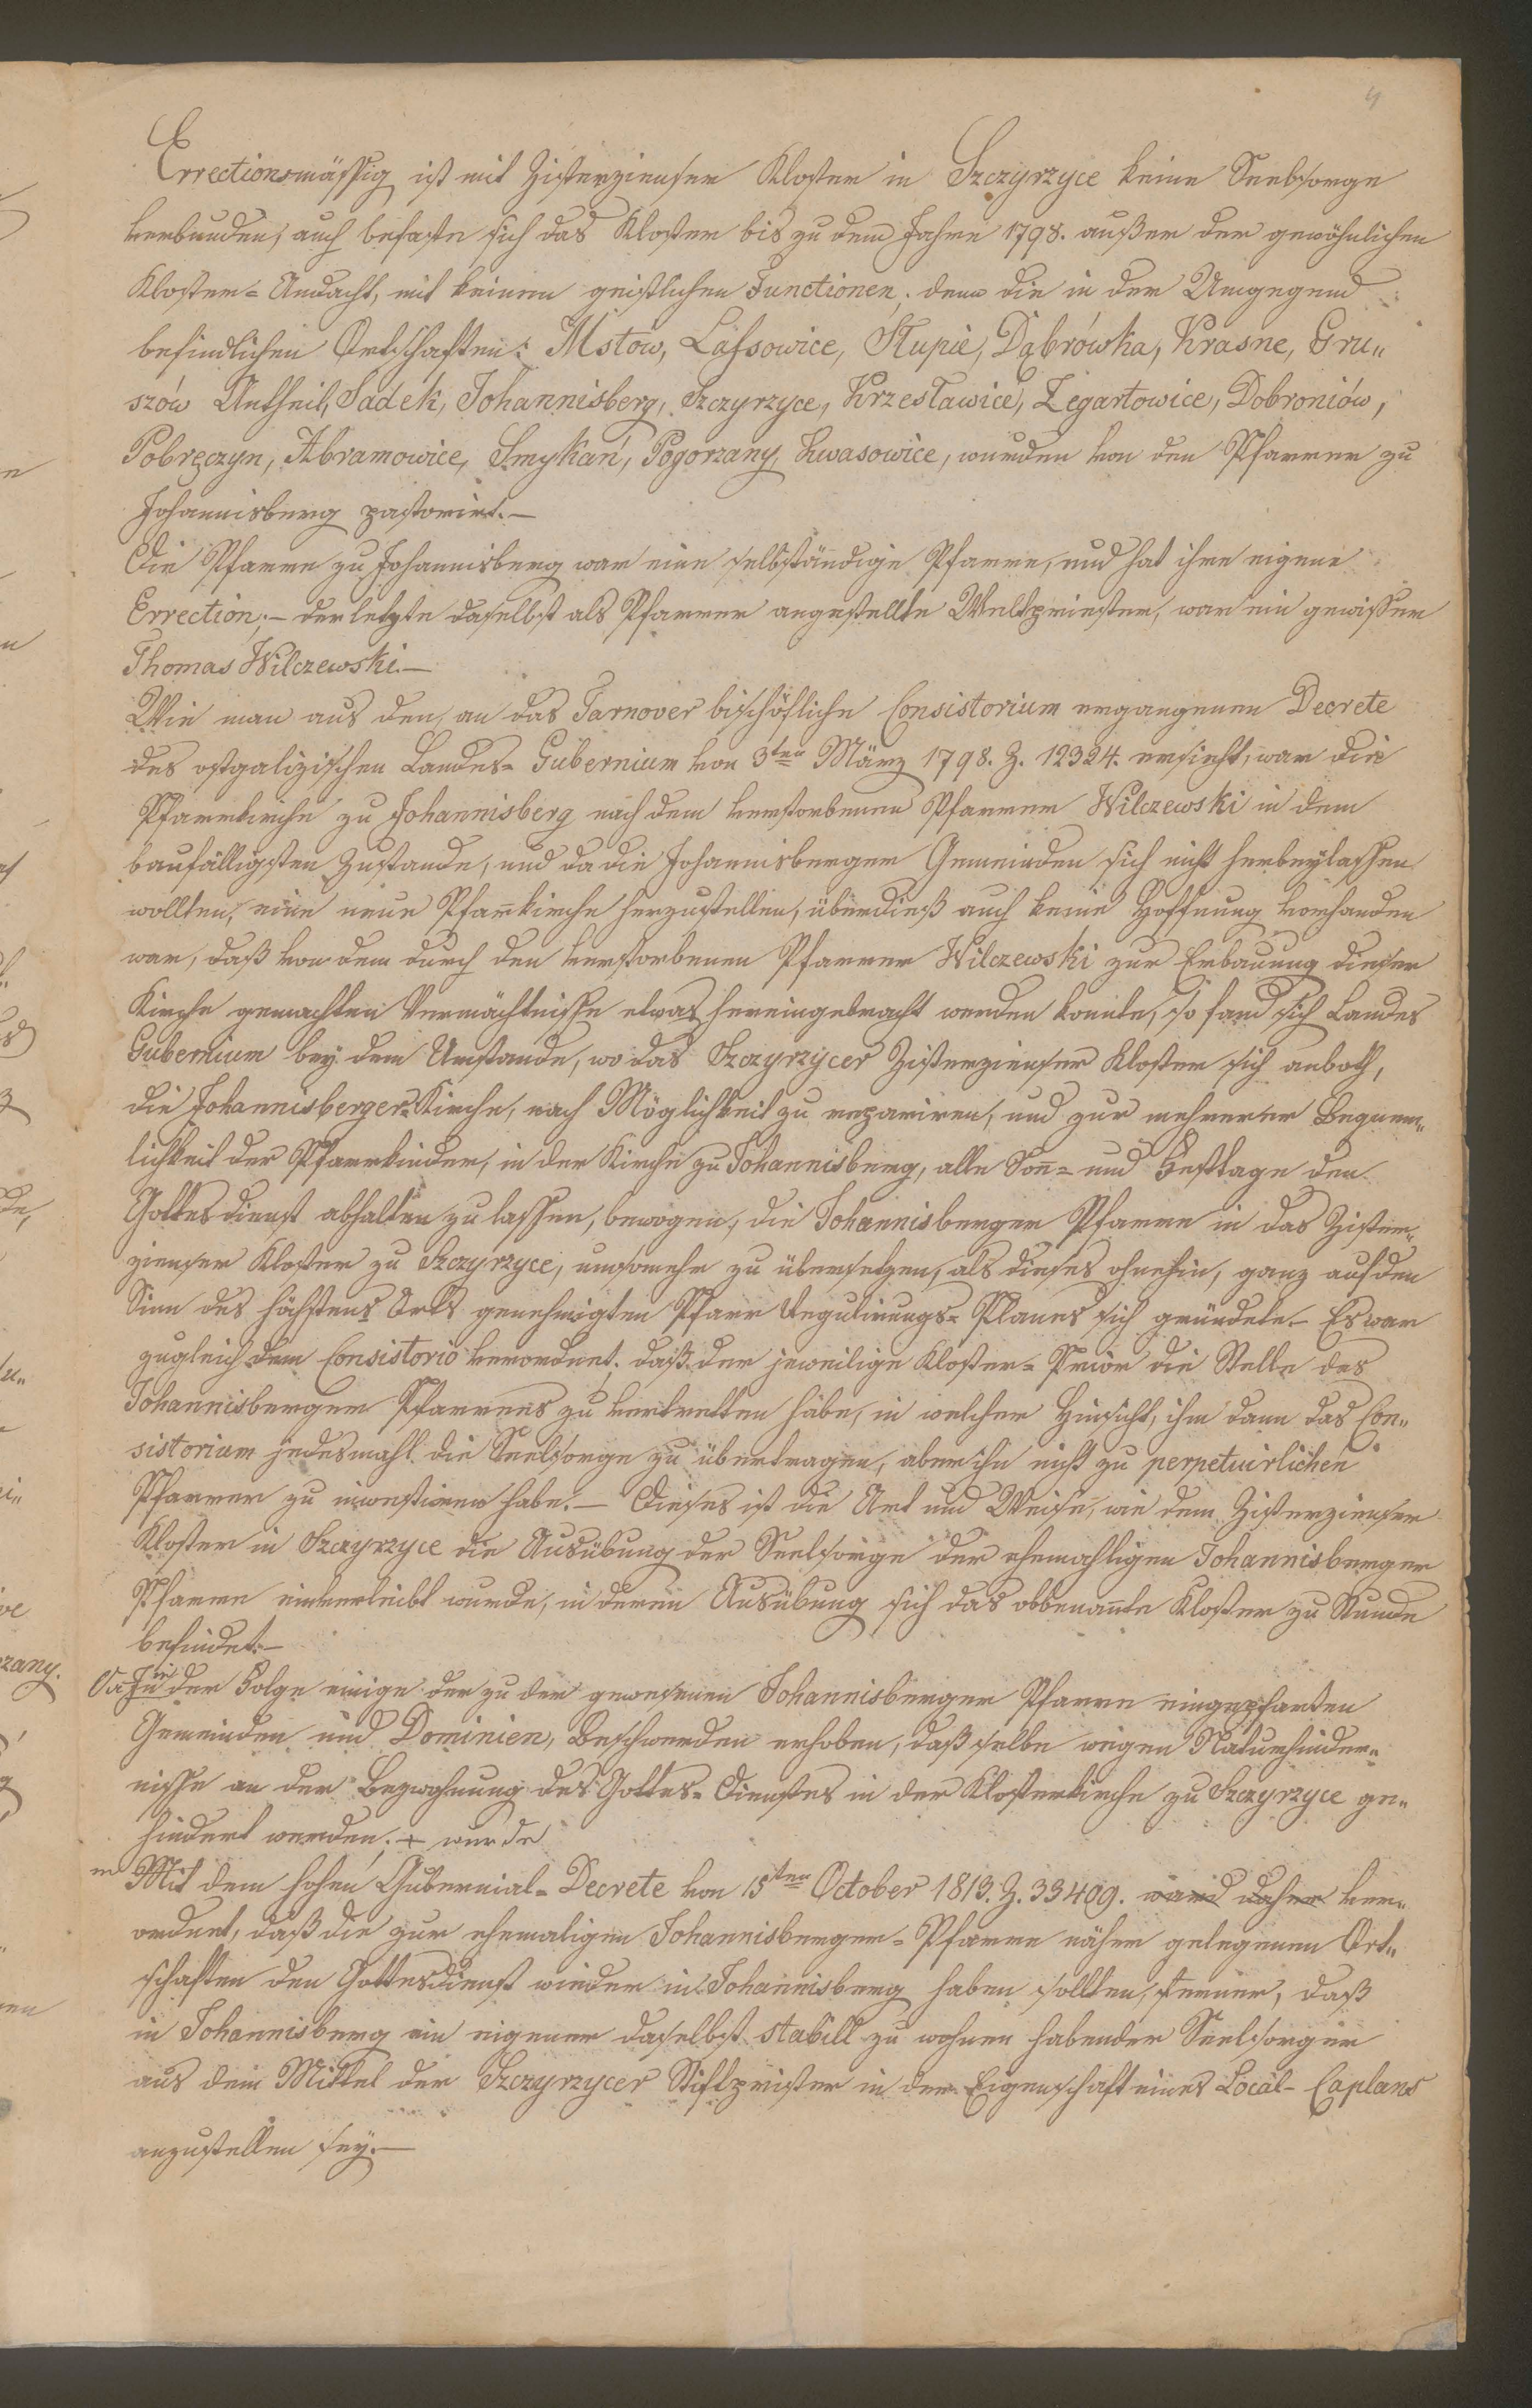 4
Errectionsmässig ist mit Zisterzienser Kloster in Szczyrzyce keine Seelsorge
verbunden; auch befaßte sich das Kloster bis zu dem Jahre 1798. außer der gewöhnlichen
Kloster-Andacht, mit keinen geistlichen Functionen; denn die in der Umgegend
befindlichen Ortschaften: Mstów, Lassowice, Słupie, Dąbrówka, Krasne, Gru„
szów Antheil, Sadek, Johannisberg, Szczyrzyce, Krzesławice, Zegartowice, Dobroniów,
Pobręczyn, Abramowice, Smykań, Pogorzany, Kwasowice, wurden von den Pfarrer zu
Johannisberg pastorirt.—
Die Pfarre zu Johannisberg war eine selbständige Pfarre, und hat ihre eigene
Errection;— der letzte daselbst als Pfarrer angestellte Weltpriester, war ein gewisser
Thomas Wilczewski.—
Wie man aus den, an das Tarnover bischöfliche Consistorium ergangenen Decrete
des ostgalizischen Landes-Gubernium von 3ten März 1798. Z. 12324. ersieht, war die
Pfarrkirche zu Johannisberg nach dem verstorbenen Pfarrer Wilczewski in dem
baufälligsten Zustande, und da die Johannisberger Gemeinden sich nicht herbeylassen
wollten, eine neue Pfarrkirche herzustellen, überdieß auch keine Hoffnung vorhanden
war, daß von dem durch den verstorbenen Pfarrer Wilczewski zur Erbauung dieser
Kirche gemachten Vermächtnisse etwas hereingebracht werden konnte, so fand sich Landes
Gubernium bey dem Umstande, wo das Szczyrzycer Zisterzienser Kloster sich anboth,
die Johannisberger-Kirche, nach Möglichkeit zu repariren, und zur mehrerer Bequem„
lichkeit der Pfarrkinder, in der Kirche zu Johannisberg, alle Son̄- und Festtage den
Gottesdienst abhalten zu lassen, bewogen, die Johannisberger Pfarre in das Zister„
zienser Kloster zu Szczyrzyce, umsomehr zu übersetzen, als dieses ohnehin, ganz auf den
Sinn des höchstens Orts genehmigten Pfarr Regulirungs-Planes sich gründete.— Es war
zugleich dem Consistorio verordnet, daß der jeweilige Kloster-Prior die Stelle des
Johannisberger Pfarrers zu vertretten habe, in welcher Hinsicht, ihm dann das Con„
sistorium jedesmahl die Seelsorge zu übertragen, aber ihn nicht zu perpetuirlichen
Pfarrer zu investiren habe.— Dieses ist die Art und Weise, wie dem Zisterzienser
Kloster in Szczyrzyce die Ausübung der Seelsorge der ehemahligen Johannisberger
Pfarre einverleibt wurde, in deren Ausübung sich das obbenan̄te Kloster zu Stunde
befindet.—
Da in der Folge einige der zu der gewesenen Johannisberger Pfarre eingepfarten
Gemeinden und Dominien, Beschwerden erhoben, daß selbe wegen Naturhinder„
nisse an der Beywohnung des Gottes-Dienstes in der Klosterkirche zu Szczyrzyce ge„
hindert werden; + wurde
m Mit dem hohen Gubernial-Decrete von 15ten October 1813. Z. 33409. ward daher ver„
ordnet, daß die zur ehemaligen Johannisberger-Pfarre näher gelegenen Ort„
schaften den Gottesdienst wieder in Johannisberg haben sollten, ferner, daß
in Johannisberg ein eigener daselbst stabill zu wohnen habender Seelsorger
aus dem Mittel der Szczyrzycer Stiftpriester in der Eigenschaft eines Local-Caplans
anzustellen sey.—